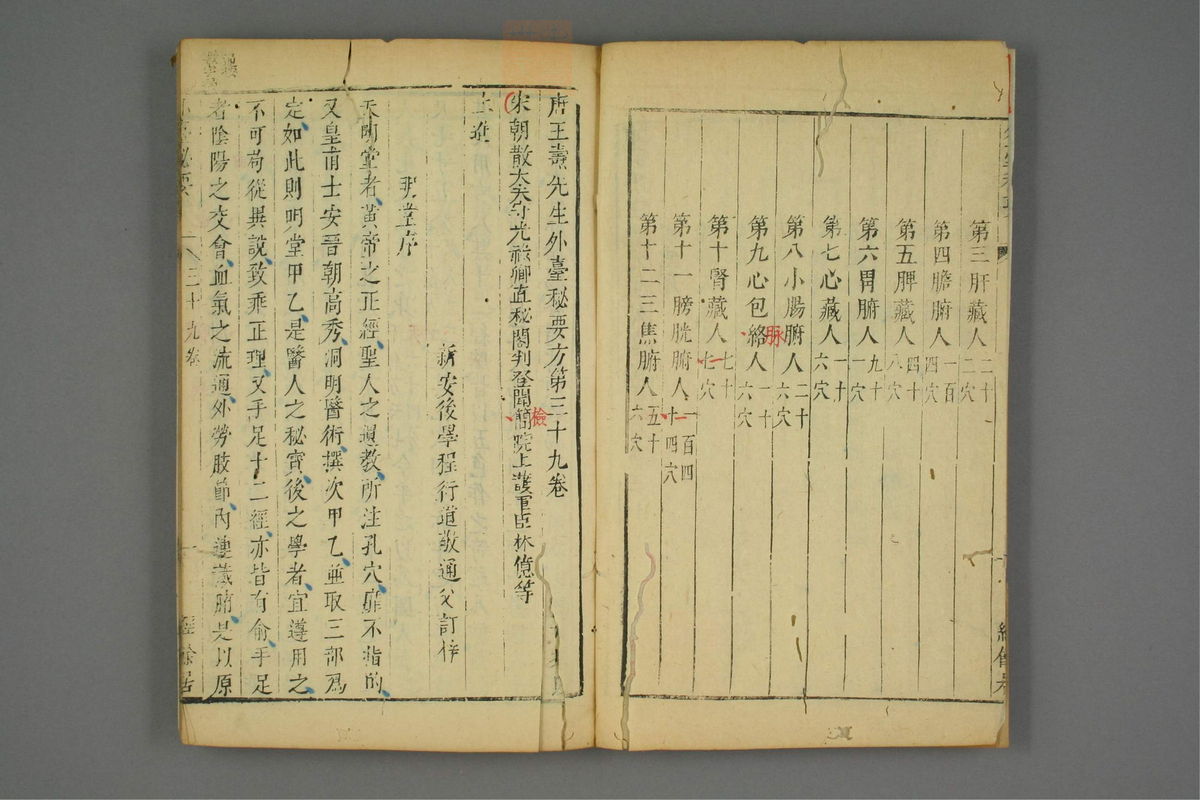 第三肝藏人二十二穴
第四膽腑人一百四穴
第五脾藏人四十八穴
第六胃腑人九十穴
第七心藏人一十六穴
第八小腸腑人二十六穴
脉
第九心包絡人一十六穴
第十腎藏人七十七穴
一
第十一膀胱腑人一百四十四穴
第十二三焦腑人五十六穴
唐王燾先生外臺秘要方第三十九卷
宋朝散大夫守光祿卿直秘閣判登聞簡院上護軍臣林億等
檢
上進
新安後學程行道敬通父訂梓
明堂序
夫明堂者黃帝之正經聖人之遺教所注孔穴靡不指的
又皇甫士安晉朝高秀洞明醫術撰次甲乙並取三部爲
定如此則明堂甲乙是醫人之秘寶後之學者宜遵用之
不可苟從異說致乖正理又手足十二經亦皆有俞手足
者陰陽之交會血氣之流通外勞肢節內連藏腑是以原
秘要
三十九卷
一
經餘居